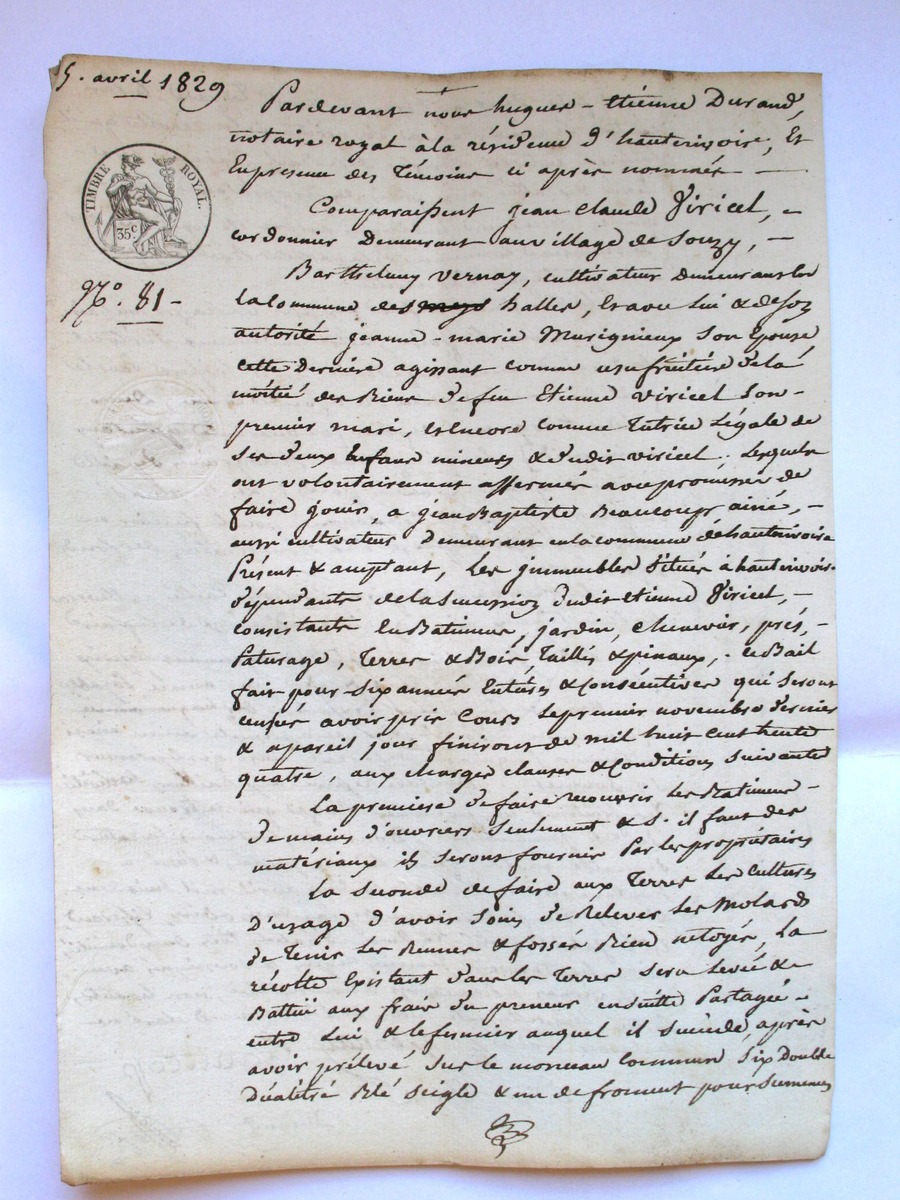 5. avril 1829
Pardevant nous hugues - Etiénne Durand,
notaire royal à la résidence d'hauterivoire, Et
En presence des Témoins ci après nommés —
TIMBRE ROYAL.
35c
Comparaissent jean claude Viricel, -
cordonnier Demeurant au village de Souzy, -
N°. 81 -
Barthelemy Vernay, cultivateur demeurant en
la Commune des halles, Et avec lui & de son
autorité jeanne - marie Murignieux son Epouse
cette Dernière agissant comme usufruitière de la
moitié des Biens de feu Etienne Viricel son -
premier mari, et Encore comme tutrice Légale de
ses deux Enfans mineurs & dudit viricel. Lesquels
ont volontairement affermés avec promesse de
faire jouir, a jean Baptiste Beaucoup ainé, -
aussi cultivateur demeurant en la commune d'hauterivoire
Présent & acceptant, Les jmmeubles situés à hauterivoire
dépendants de la succession dudit etienne Viricel, -
consistants En Batimens, jardin, chenevier, prés, -
Paturage, Terres & Bois, Taillés & pinaux, - ce Bail
fait pour six années Entières & Consécutives qui seront
censés avoir pris Cours le premier novembre dernier
& apareil jour finiront de mil huit cent trente
quatre, aux charges clauses & Conditions suivantes
La premiere de faire recouvrir les Batimens -
de mains d'ouvriers seulement & s'il faut des
matériaux ils seront fournis Par les propriétaires
La seconde de faire aux Terres Les Cultures
D'usage d'avoir soin de Relever Les Molards
de Tenir Les & fossés Bien netoyés, La
récolte Existant dans les Terres sera Levée &
Battüe aux frais du preneur ensuitte Partagée -
entre Lui & le fermier auquel il succède, après
avoir prélevé sur le monceau commun six Double
Décalitre Blé seigle & un de froment pour semences